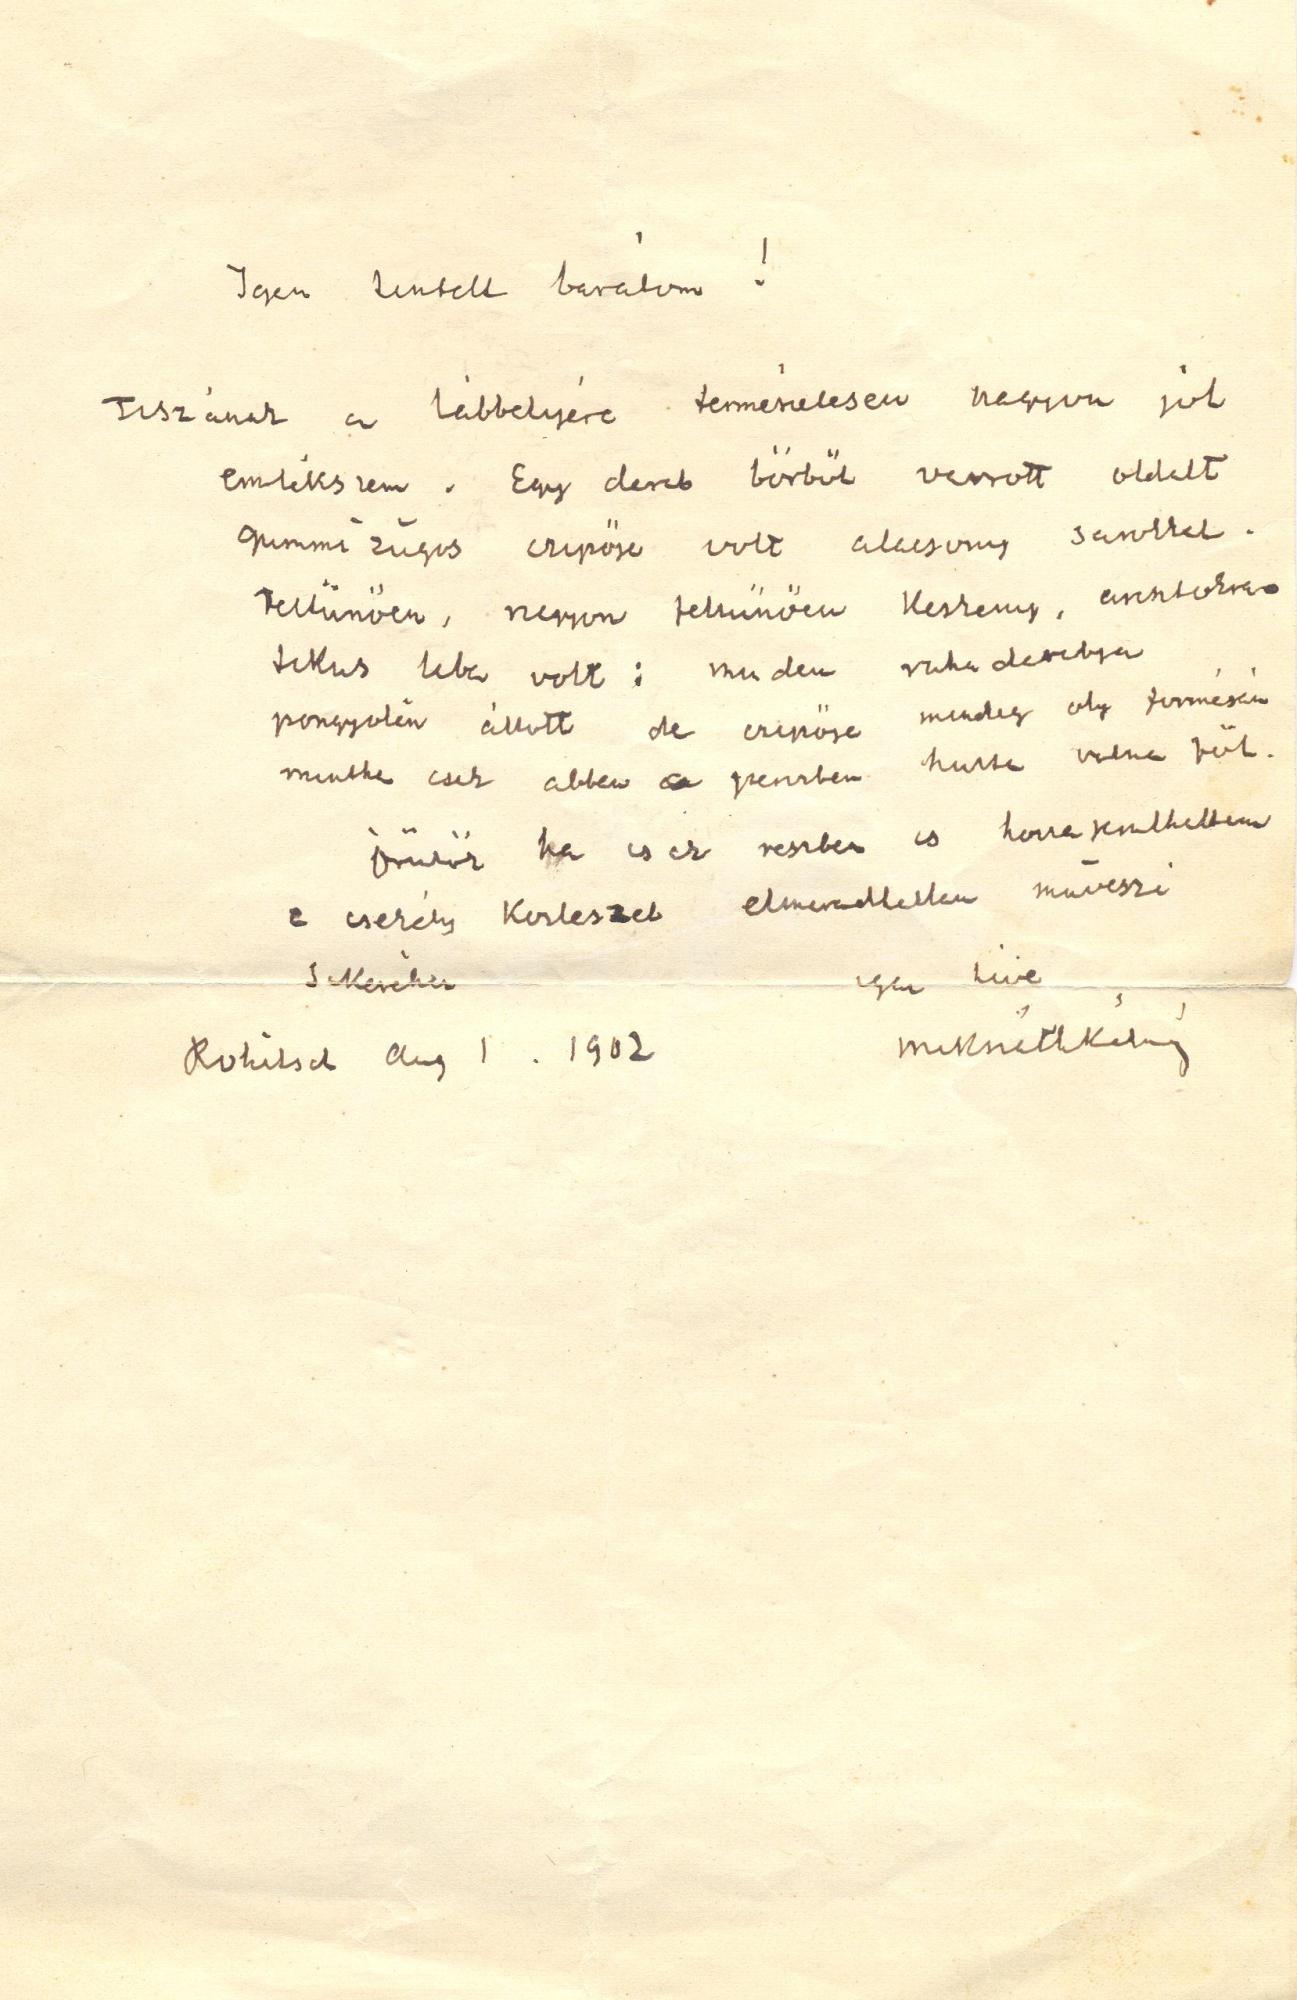 Igen tisztelt barátom!
Tiszának a lábbelijére természetesen nagyon jól
emlékszem. Egy darab bőrből varrott oldalt
gummi zúgos czipője volt alacsony sarokkal.
Feltünően, nagyon feltünően keskeny, arisztokra-
tikus lába volt: minden ruhadarabja
pongyolán állott de czipője mindig oly formásan
mintha csak abban a perczben huzta volna föl.
Örülök ha csak részben is hozzájárulhattam
e csekély
művészi
sikeréhez igaz hive
Rohitsch Aug 1. 1902 Mikszáth Kálmán